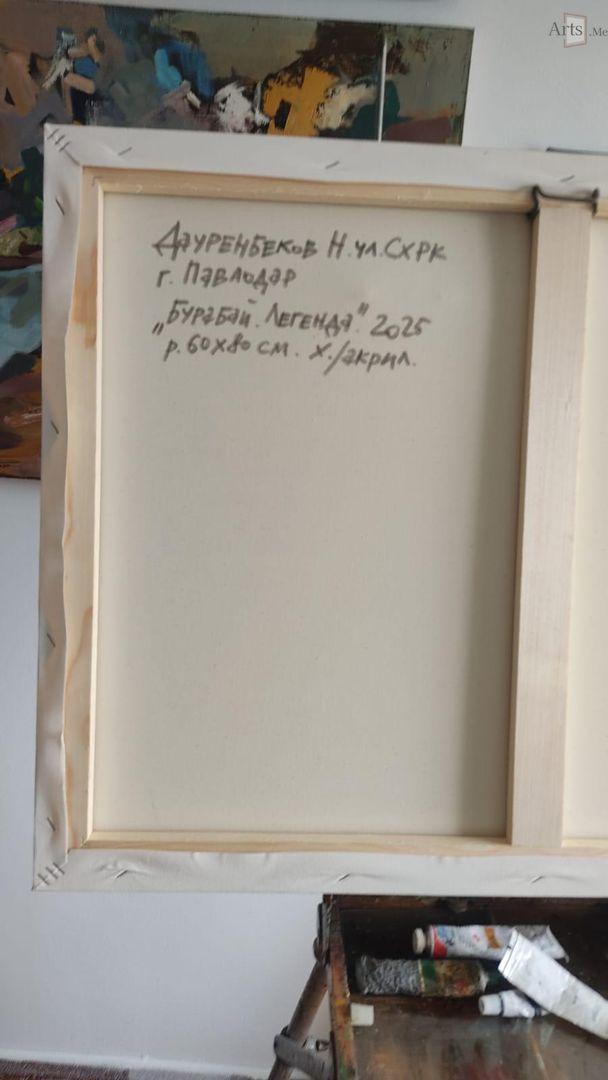 Arts.Me
Дауренбеков Н. чл. СХРК
г. Павлодар
"Бурабай. Легенда." 2025
р. 60х80 см. х./акрил.